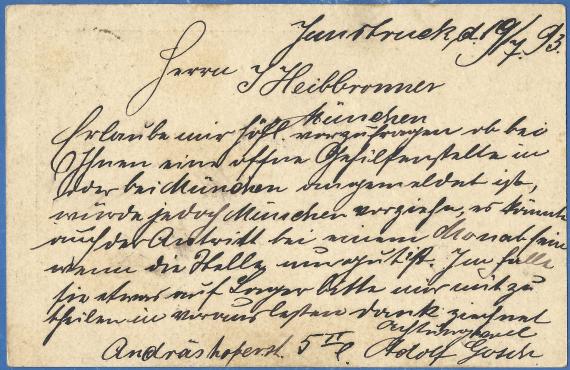 Innsbruck, d. 19/7. 93.
Herrn J Heilbronner
München
Erlaube mir höfl vorzufragen ob bei
Ihnen eine offne Gehilfenstelle in
oder bei München angemeldet ist,
würde jedoch München vorziehn, es könnte
auch der Antritt bei einem Monat sein
wenn die Stelle nur gut ist. Im falle
sie etwas auf Lager bitte nur mit zu
theilen im voraus besten dank zeichnet
achtungsvoll
Andräshoferst. 5 II Adolf Gosch